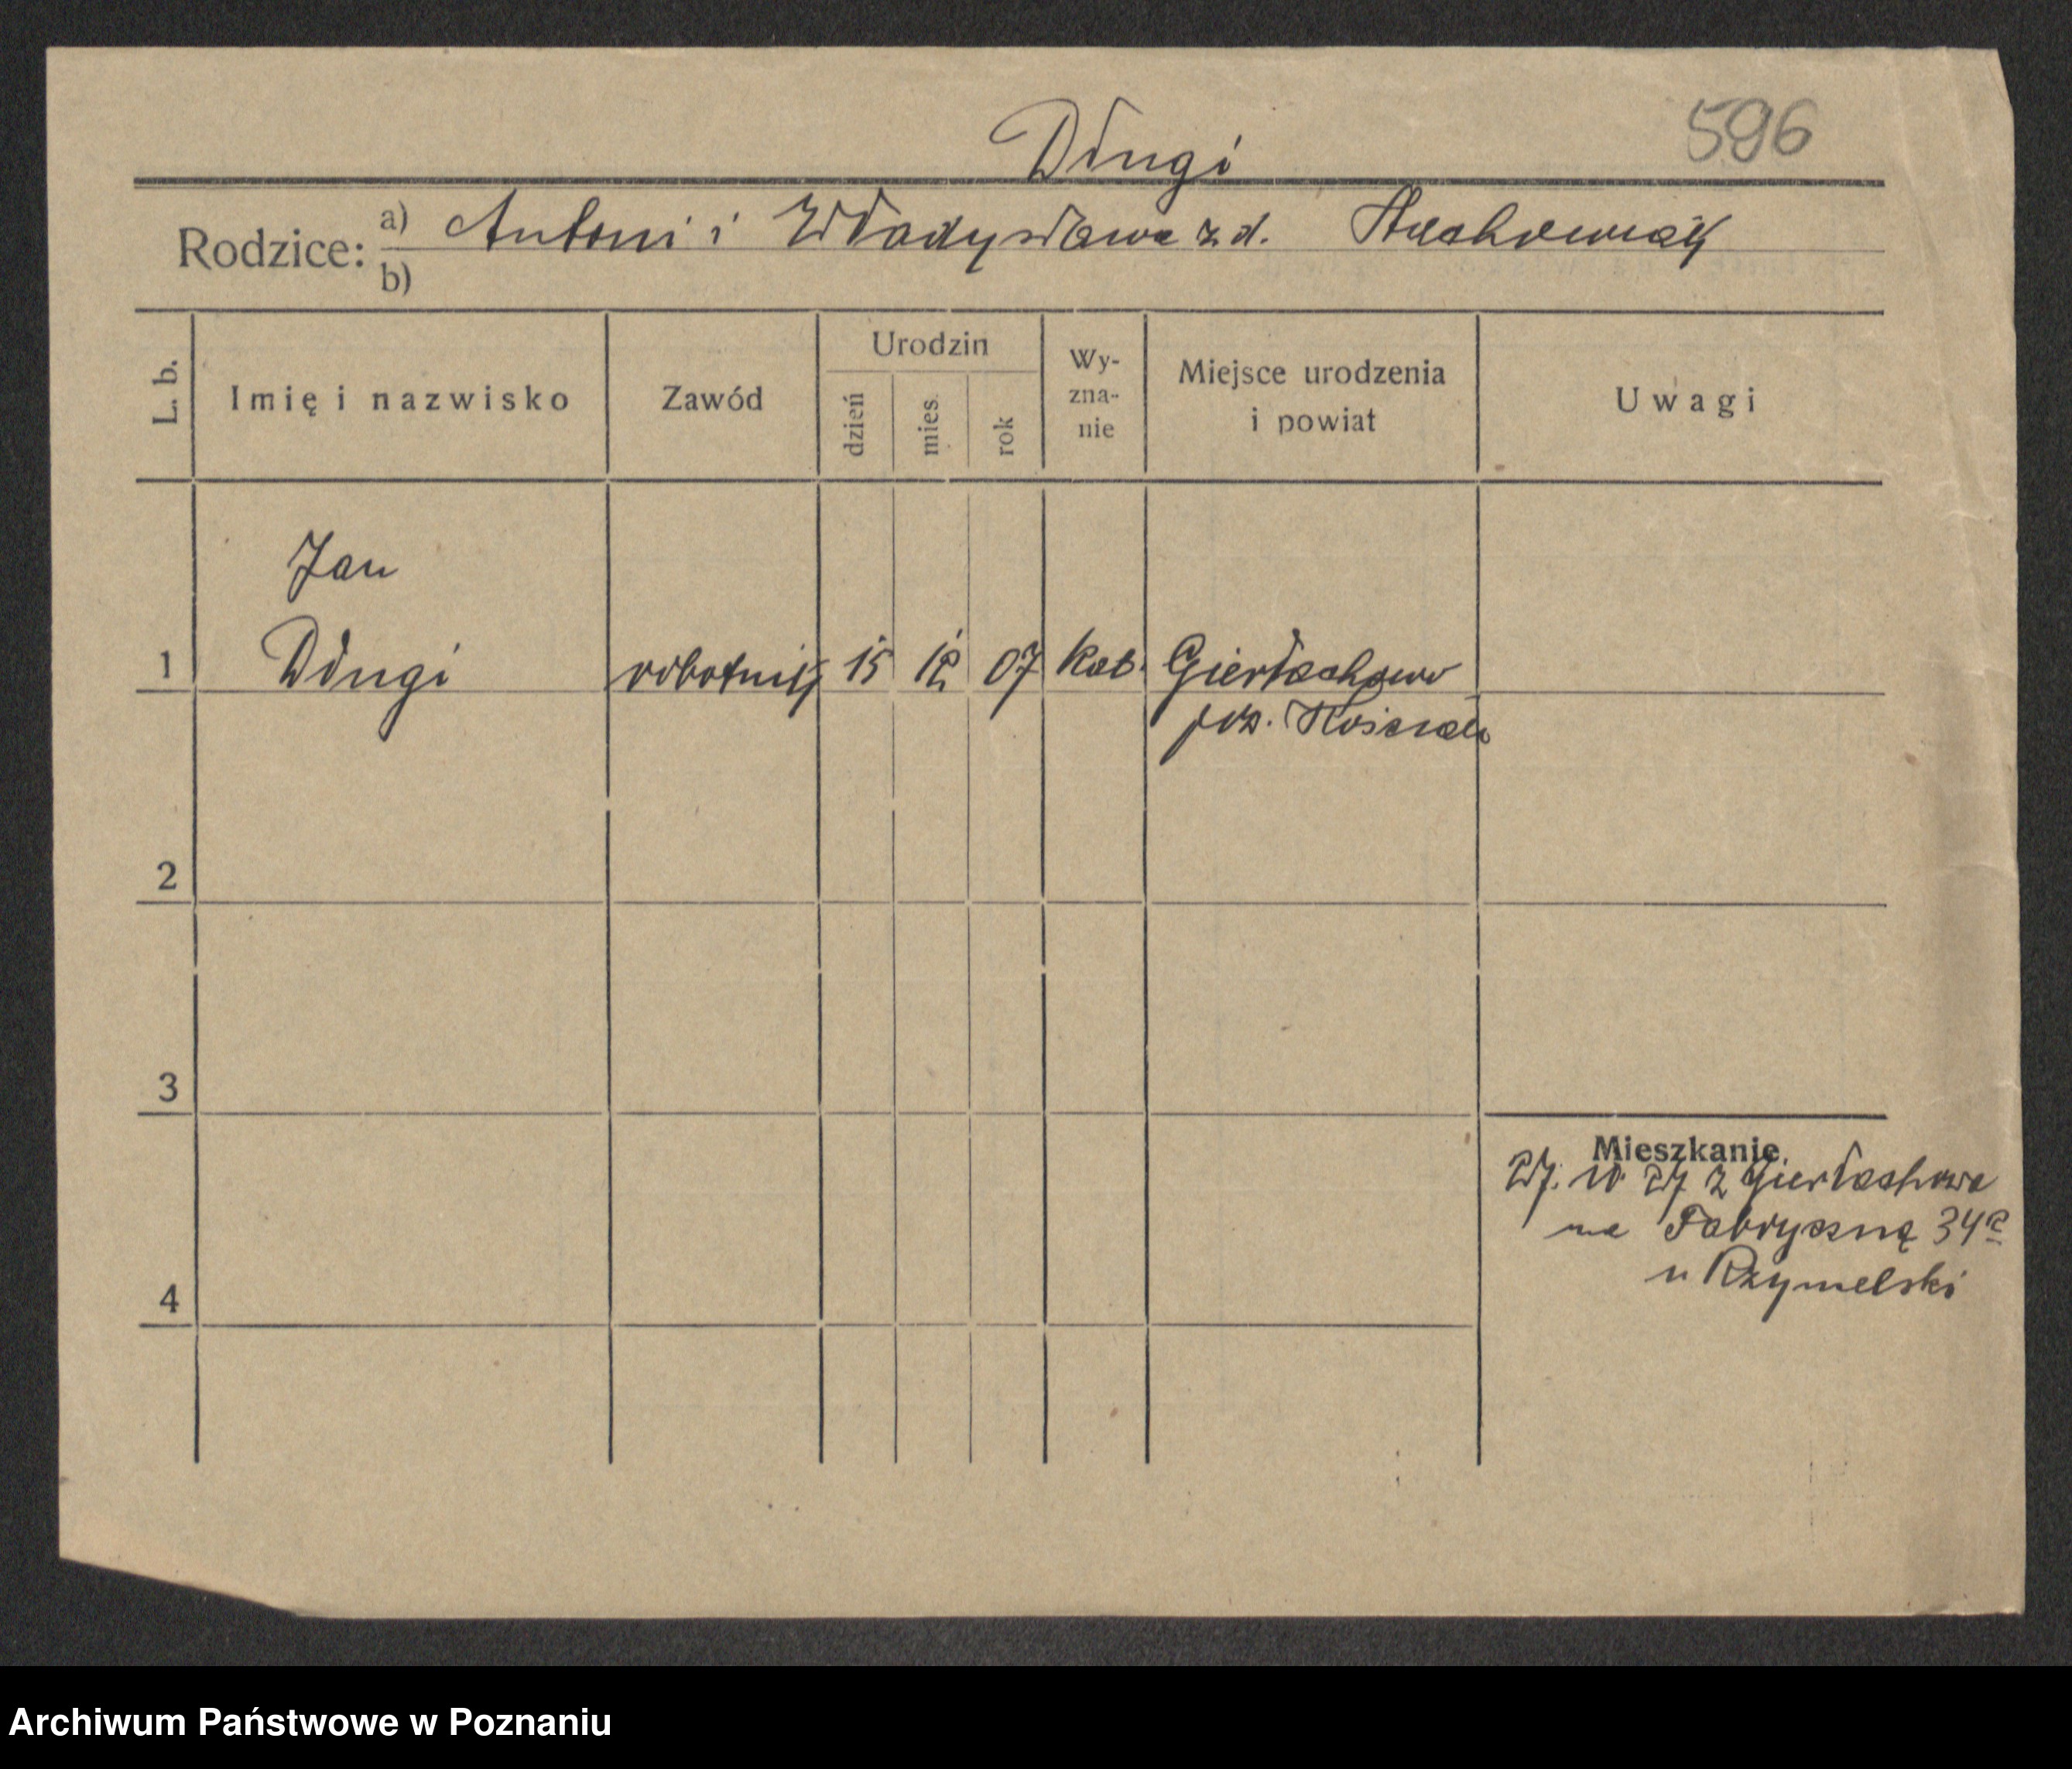 Długi
596
Rodzice: a) Antoni i Władysława z d. Stachowiak
b)
L. b.
Imię i nazwisko
Zawód
Urodzin
dzień
mies.
rok
Wy-
zna-
nie
Miejsce urodzenia
i powiat
Uwagi
Jan
1 Długi robotnik 15 12 07 kat. Gierłachowo
pow. Kościan
2
3
4
Mieszkanie.
27. 10. 27 z Gierłachowa
na Fabryczną 34
u Rzymelski
Archiwum Państwowe w Poznaniu